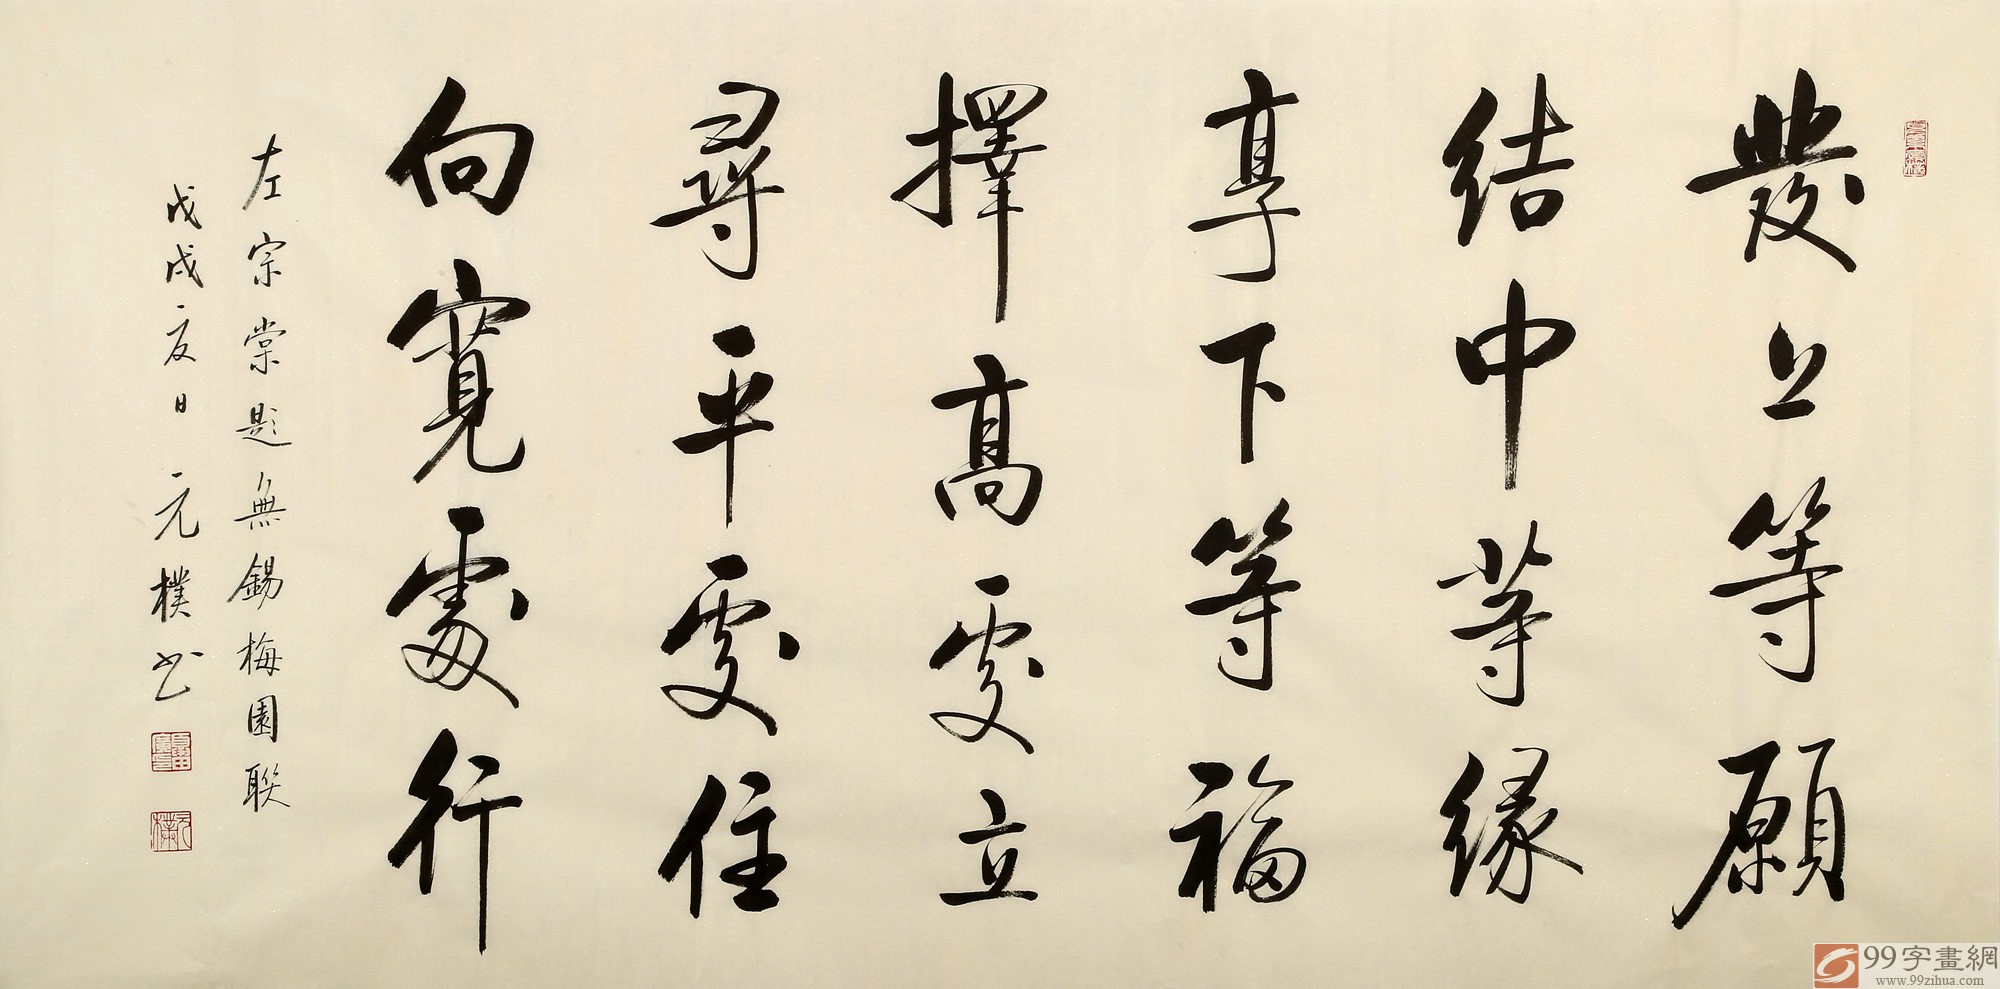 發上等願
結中等緣
享下等福
擇高處立
尋平處住
向寬處行
左宗棠題無錫梅園聯
戊戌夏日元樸书
99字畫網
www.99zihua.com